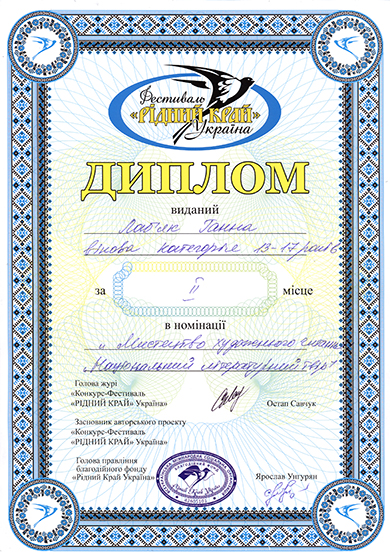 Фестиваль
«РІДНИЙ КРАЙ»
Україна
ДИПЛОМ
виданий
Ганна
вікова категорія 13-17 років
за II місце
в номінації
„ Мистецтво художнього
„Національний літературний твір"
Голова журі
«Конкурс-Фестиваль
«РІДНИЙ КРАЙ» Україна»
Остап Савчук
Засновник авторського проєкту
«Конкурс-Фестиваль
«РІДНИЙ КРАЙ» Україна»
Голова правління
благодійного фонду
«Рідний Край Україна»
Ярослав Унгурян